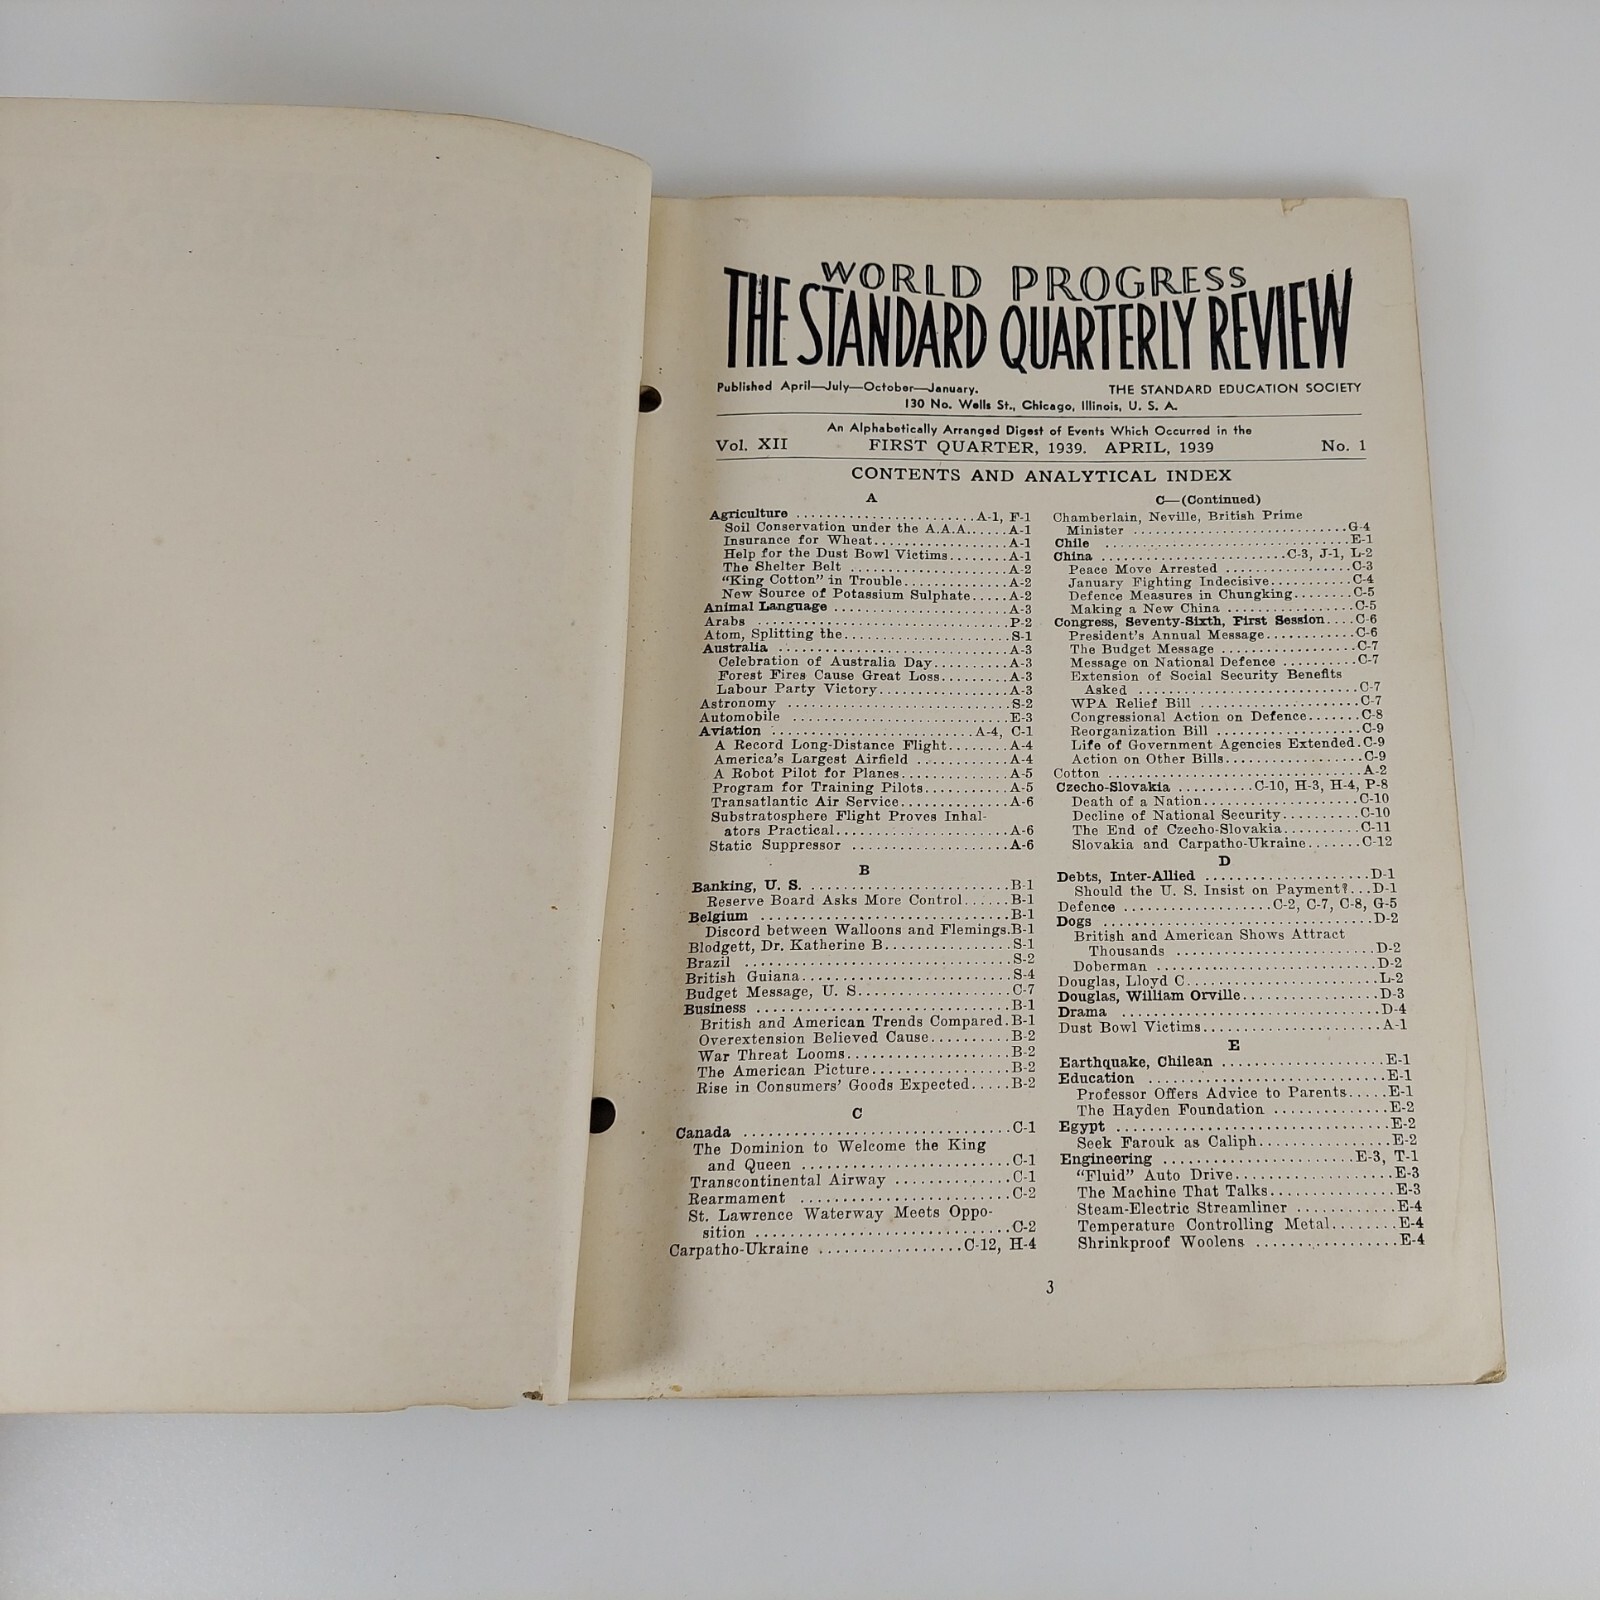 WORLD PROGRESS
THE STANDARD QUARTERLY REVIEW
Published April—July—October—January. THE STANDARD EDUCATION SOCIETY
130 No. Wells St., Chicago, Illinois, U. S. A.
An Alphabetically Arranged Digest of Events Which Occurred in the
Vol. XII FIRST QUARTER, 1939. APRIL, 1939 No. 1
CONTENTS AND ANALYTICAL INDEX
A
Agriculture ........................A-1, F-1
Soil Conservation under the A.A.A......A-1
Insurance for Wheat.................A-1
Help for the Dust Bowl Victims........A-1
The Shelter Belt ....................A-2
“King Cotton” in Trouble.............A-2
New Source of Potassium Sulphate.....A-2
Animal Language ......................A-3
Arabs ................................P-2
Atom, Splitting the....................S-1
Australia .............................A-3
Celebration of Australia Day..........A-3
Forest Fires Cause Great Loss.........A-3
Labour Party Victory................A-3
Astronomy ............................S-2
Automobile ...........................E-3
Aviation ........................A-4, C-1
A Record Long-Distance Flight........A-4
America's Largest Airfield ...........A-4
A Robot Pilot for Planes.............A-5
Program for Training Pilots..........A-5
Transatlantic Air Service.............A-6
Substratosphere Flight Proves Inhal-
ators Practical.....................A-6
Static Suppressor ...................A-6
B
Banking, U. S. ........................B-1
Reserve Board Asks More Control......B-1
Belgium ..............................B-1
Discord between Walloons and Flemings.B-1
Blodgett, Dr. Katherine B...............S-1
Brazil ................................S-2
British Guiana.........................S-4
Budget Message, U. S..................C-7
Business ..............................B-1
British and American Trends Compared.B-1
Overextension Believed Cause..........B-2
War Threat Looms...................B-2
The American Picture................B-2
Rise in Consumers' Goods Expected.....B-2
C
Canada ...............................C-1
The Dominion to Welcome the King
and Queen .........................C-1
Transcontinental Airway .............C-1
Rearmament ........................C-2
St. Lawrence Waterway Meets Oppo-
sition ..............................C-2
Carpatho-Ukraine .................C-12, H-4
C—(Continued)
Chamberlain, Neville, British Prime
Minister ..........................G-4
Chile ................................E-1
China ......................C-3, J-1, L-2
Peace Move Arrested ................C-3
January Fighting Indecisive..........C-4
Defence Measures in Chungking........C-5
Making a New China .................C-5
Congress, Seventy-Sixth, First Session....C-6
President's Annual Message...........C-6
The Budget Message .................C-7
Message on National Defence .........C-7
Extension of Social Security Benefits
Asked ............................C-7
WPA Relief Bill .....................C-7
Congressional Action on Defence.......C-8
Reorganization Bill ..................C-9
Life of Government Agencies Extended.C-9
Action on Other Bills.................C-9
Cotton ...............................A-2
Czecho-Slovakia ..........C-10, H-3, H-4, P-8
Death of a Nation...................C-10
Decline of National Security..........C-10
The End of Czecho-Slovakia..........C-11
Slovakia and Carpatho-Ukraine.......C-12
D
Debts, Inter-Allied .....................D-1
Should the U. S. Insist on Payment?...D-1
Defence ..................C-2, C-7, C-8, G-5
Dogs .................................D-2
British and American Shows Attract
Thousands ........................D-2
Doberman ..........................D-2
Douglas, Lloyd C.......................L-2
Douglas, William Orville................D-3
Drama ................................D-4
Dust Bowl Victims.....................A-1
E
Earthquake, Chilean ...................E-1
Education ............................E-1
Professor Offers Advice to Parents.....E-1
The Hayden Foundation ..............E-2
Egypt ................................E-2
Seek Farouk as Caliph................E-2
Engineering .......................E-3, T-1
“Fluid” Auto Drive...................E-3
The Machine That Talks..............E-3
Steam-Electric Streamliner ............E-4
Temperature Controlling Metal........E-4
Shrinkproof Woolens .................E-4
3